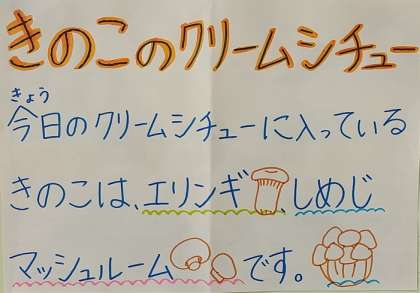 きのこのクリームシチュー
きょう
今日のクリームシチューに入っている
きのこは、エリンギ、しめじ
マッシュルームです。